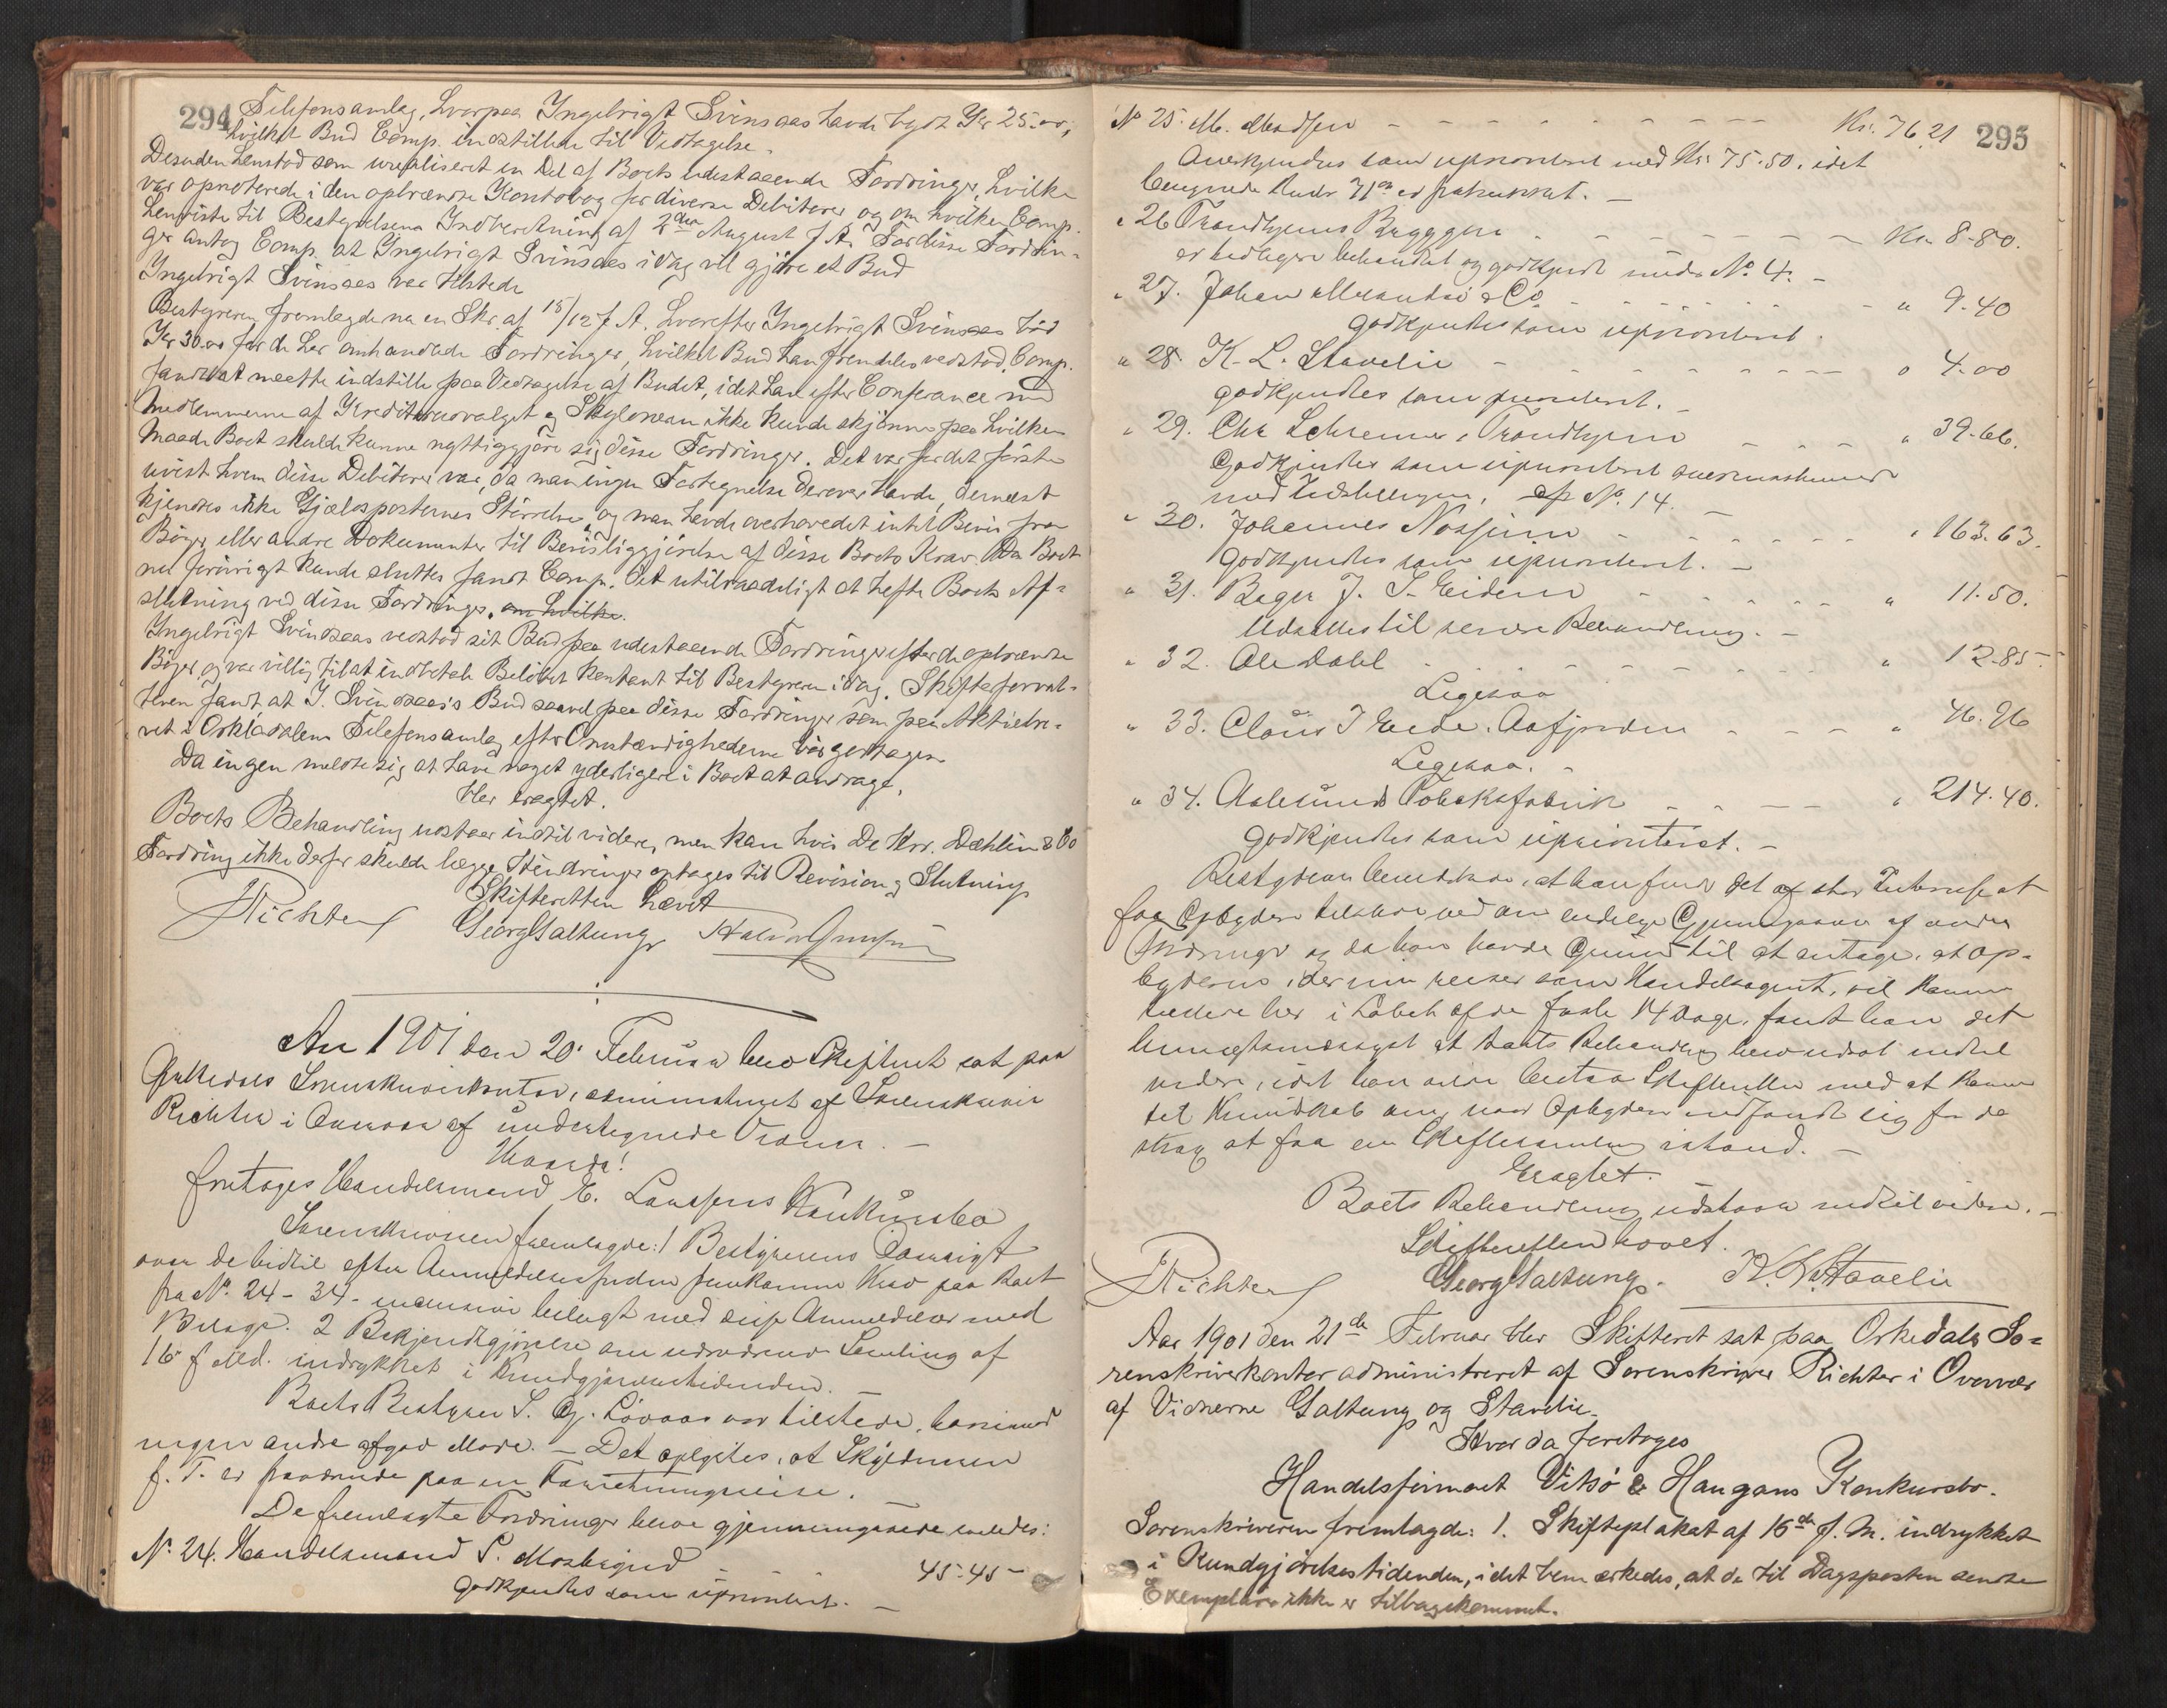 294
Telefonsanlæg, hvorpaa Ingebrigt Svinsaas havde bydt Kr 25.00,
hvilket Bud Comp. indstiller til Vedtagelse.
Desuden henstod som urealiseret en Del af Boets udestaaende Fordringer, hvilke
var opnoterede i den opbrændte Kontobog for diverse Debitorer og om hvilke Comp.
henviste til Bestyrelsens Indberetning af 2den August f. A. For disse Fordrin-
ger antog Comp. at Ingebrigt Svinsaas i dag vil gjøre et Bud
Ingebrigt Svinsaas var tilstede
Bestyreren fremlagde nu en Skr. af 15/12 f. A. hvorefter Ingebrigt Svinsaas bød
Kr 30.00 for de her omhandlede Fordringer, hvilket Bud han fremdeles vedstod. Comp.
fandt at maatte indstille paa Vedtagelse af Budet, idet han efter Conferance med
Medlemmerne af Kreditorudvalget og Skyldneren ikke kunde skjønne paa hvilken
Maade Boet skulde kunne nyttiggjøre sig disse Fordringer. Det var for det første
uvist hvem disse Debitorer var, da man ingen Fortegnelse derover havde, dernæst
kjendtes ikke Gjældsposternes Størrelse og man havde overhovedet intet Bevis fra
Bøger eller andre Dokumenter til Bevisliggjørelse af disse Boets Krav. Da Boet
nu forøvrigt kunde sluttes fandt Comp. det utilraadeligt at hefte Boets Af-
slutning ved disse Fordringer. om hvilke.
Ingebrigt Svinsaas vedstod sit Bud paa udestaaende Fordringer efter de opbrændte
Bøger og var villig til at indbetale Beløbet kontant til Bestyreren idag. Skifteforval-
teren fandt at I. Svinsaas's Bud saavel paa disse Fordringer som paa Aktiebre-
vet i Orkladalens Telefonsanlæg efter Omstændighederne bør godtages.
Da ingen meldte sig at have noget yderligere i Boet at andrage,
blev eragtet.
Boets Behandling udstaar indtil videre, men kan hvis De Hrr. Dæhlin & Co
Fordring ikke derfor skulde lægge Hindringer optages til Revision og Slutning
Skifteretten hævet
Richter Georg Galtung
An 1901 den 20. Februar blev Skifteret sat paa
Orkedals Sorenskriverkontor, administreret af Sorenskriver
Richter i Overvær af undertegnede Vidner. —
Hvorda!
foretages Handelsmand E. Larssens Konkursbo
Sorenskriveren fremlagde: 1 Bestyrerens Oversigt
over de hidtil efter Anmeldelsesfristen fremkomne Krav paa Boet
fra No. 24 - 34 - inclusive belagt med disse Anmeldelser med
Bilage. 2 Bekjendtgjørelse om Samling af
16 f Md. indrykket i Kundgjørelsestidenden. —
Boets Bestyrer S. Løvaas var tilstede, hvorimod
ingen andre afgav Møde. — Det oplystes, at Skyldneren
f. T. er fraværende paa en Forretningsreise.
De fremlagte Fordringer blev gjennemgaaede saaledes:
No 24. Handelsmand P. 45-45 -
Godkjendtes som uprioritert. —
295
No 25. M. Madsen - - - - - - - - Kr. 76,21
Anerkjendtes som uprioriteret med Kr. 75.50. idet
beregnede Renter 71 øre er fratrukket. —
" 26 Trondhjems Bryggeri - - - - - - Kr. 8-80.
er tidligere behandlet og godkjendt under No. 4. -
" 27. Johan & Co - - - - - " 9-40
godkjendtes som uprioriteret.
" 28. K. L. Stavelie - - - - - " 4-00
godkjendtes som prioriteret. —
" 29. Chr Schreiner, Trondhjem - - - " 39-66.
Godkjendtes som uprioriteret overensstemmende
med Indstillingen, cfr No. 14. —
" 30. Johannes - - - - - " 163.63.
godkjendtes som uprioriteret. —
" 31. Bager J. S. Eidem - - - - - " 11.50.
Udsattes til senere Behandling. —
" 32. Ole Dahl - - - - - " 12-85.
Ligesaa
" 33. Claus J Eide. Aafjorden - - - " 46.96
Ligesaa. -
" 34. Aalesunds Tobaksfabrik - - - - " 214.40.
godkjendtes som uprioriteret. —
Bestyreren bemærkede, at han fandt det af stor Interesse at
faa Opbyderen tilstede ved den endelige Gjennemgaaen af andre
Fordringer og da han havde Grund til at antage, at Op-
byderen, der nu reiser som Handelsagent, vil komme
tilstede her i Løbet af de første 14 Dage, fandt han det
at Boets Behandling blev udsat indtil
videre, idet han vilde bistaa Skifteretten med at komme
til Kundskab om, naar Opbyderen indfandt sig for da
strax at faa en Skiftesamling istand. —
Eragtet.
Boets Behandling udstaar indtil videre. —
Skifteretten hævet.
Richter Georg Galtung. K. L. Stavelie
Aar 1901 den 21de Februar blev Skifteret sat paa Orkedals So-
renskriverkontor administreret af Sorenskriver Richter i Overvær
af Vidnerne Galtung og Stavelie.
Hvor da foretoges
Handelsfirmaet Vitsø & Haugans Konkursbo.
Sorenskriveren fremlagde: 1. Skifteplakat af 16de f. M. indrykket
i Kundgjørelsestidenden, idet bemærkedes, at de til Dagsposten sendte
Exemplarer ikke er tilbagekommet.